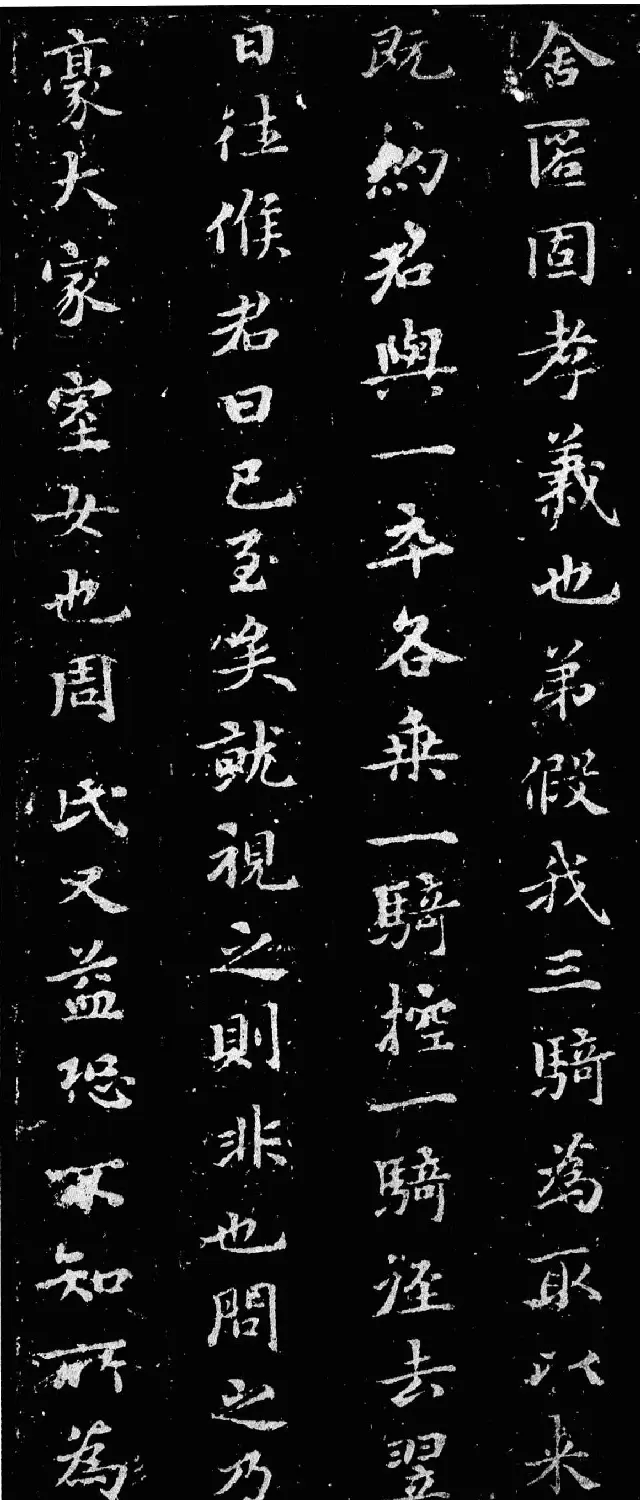 舍匿固孝義也弟假我三騎為取以来
既約君與一卒各乗一騎控一騎径去翌
日往候君曰已至矣就視之則非也問之乃
豪大家室女也周氏又益恐不知所為